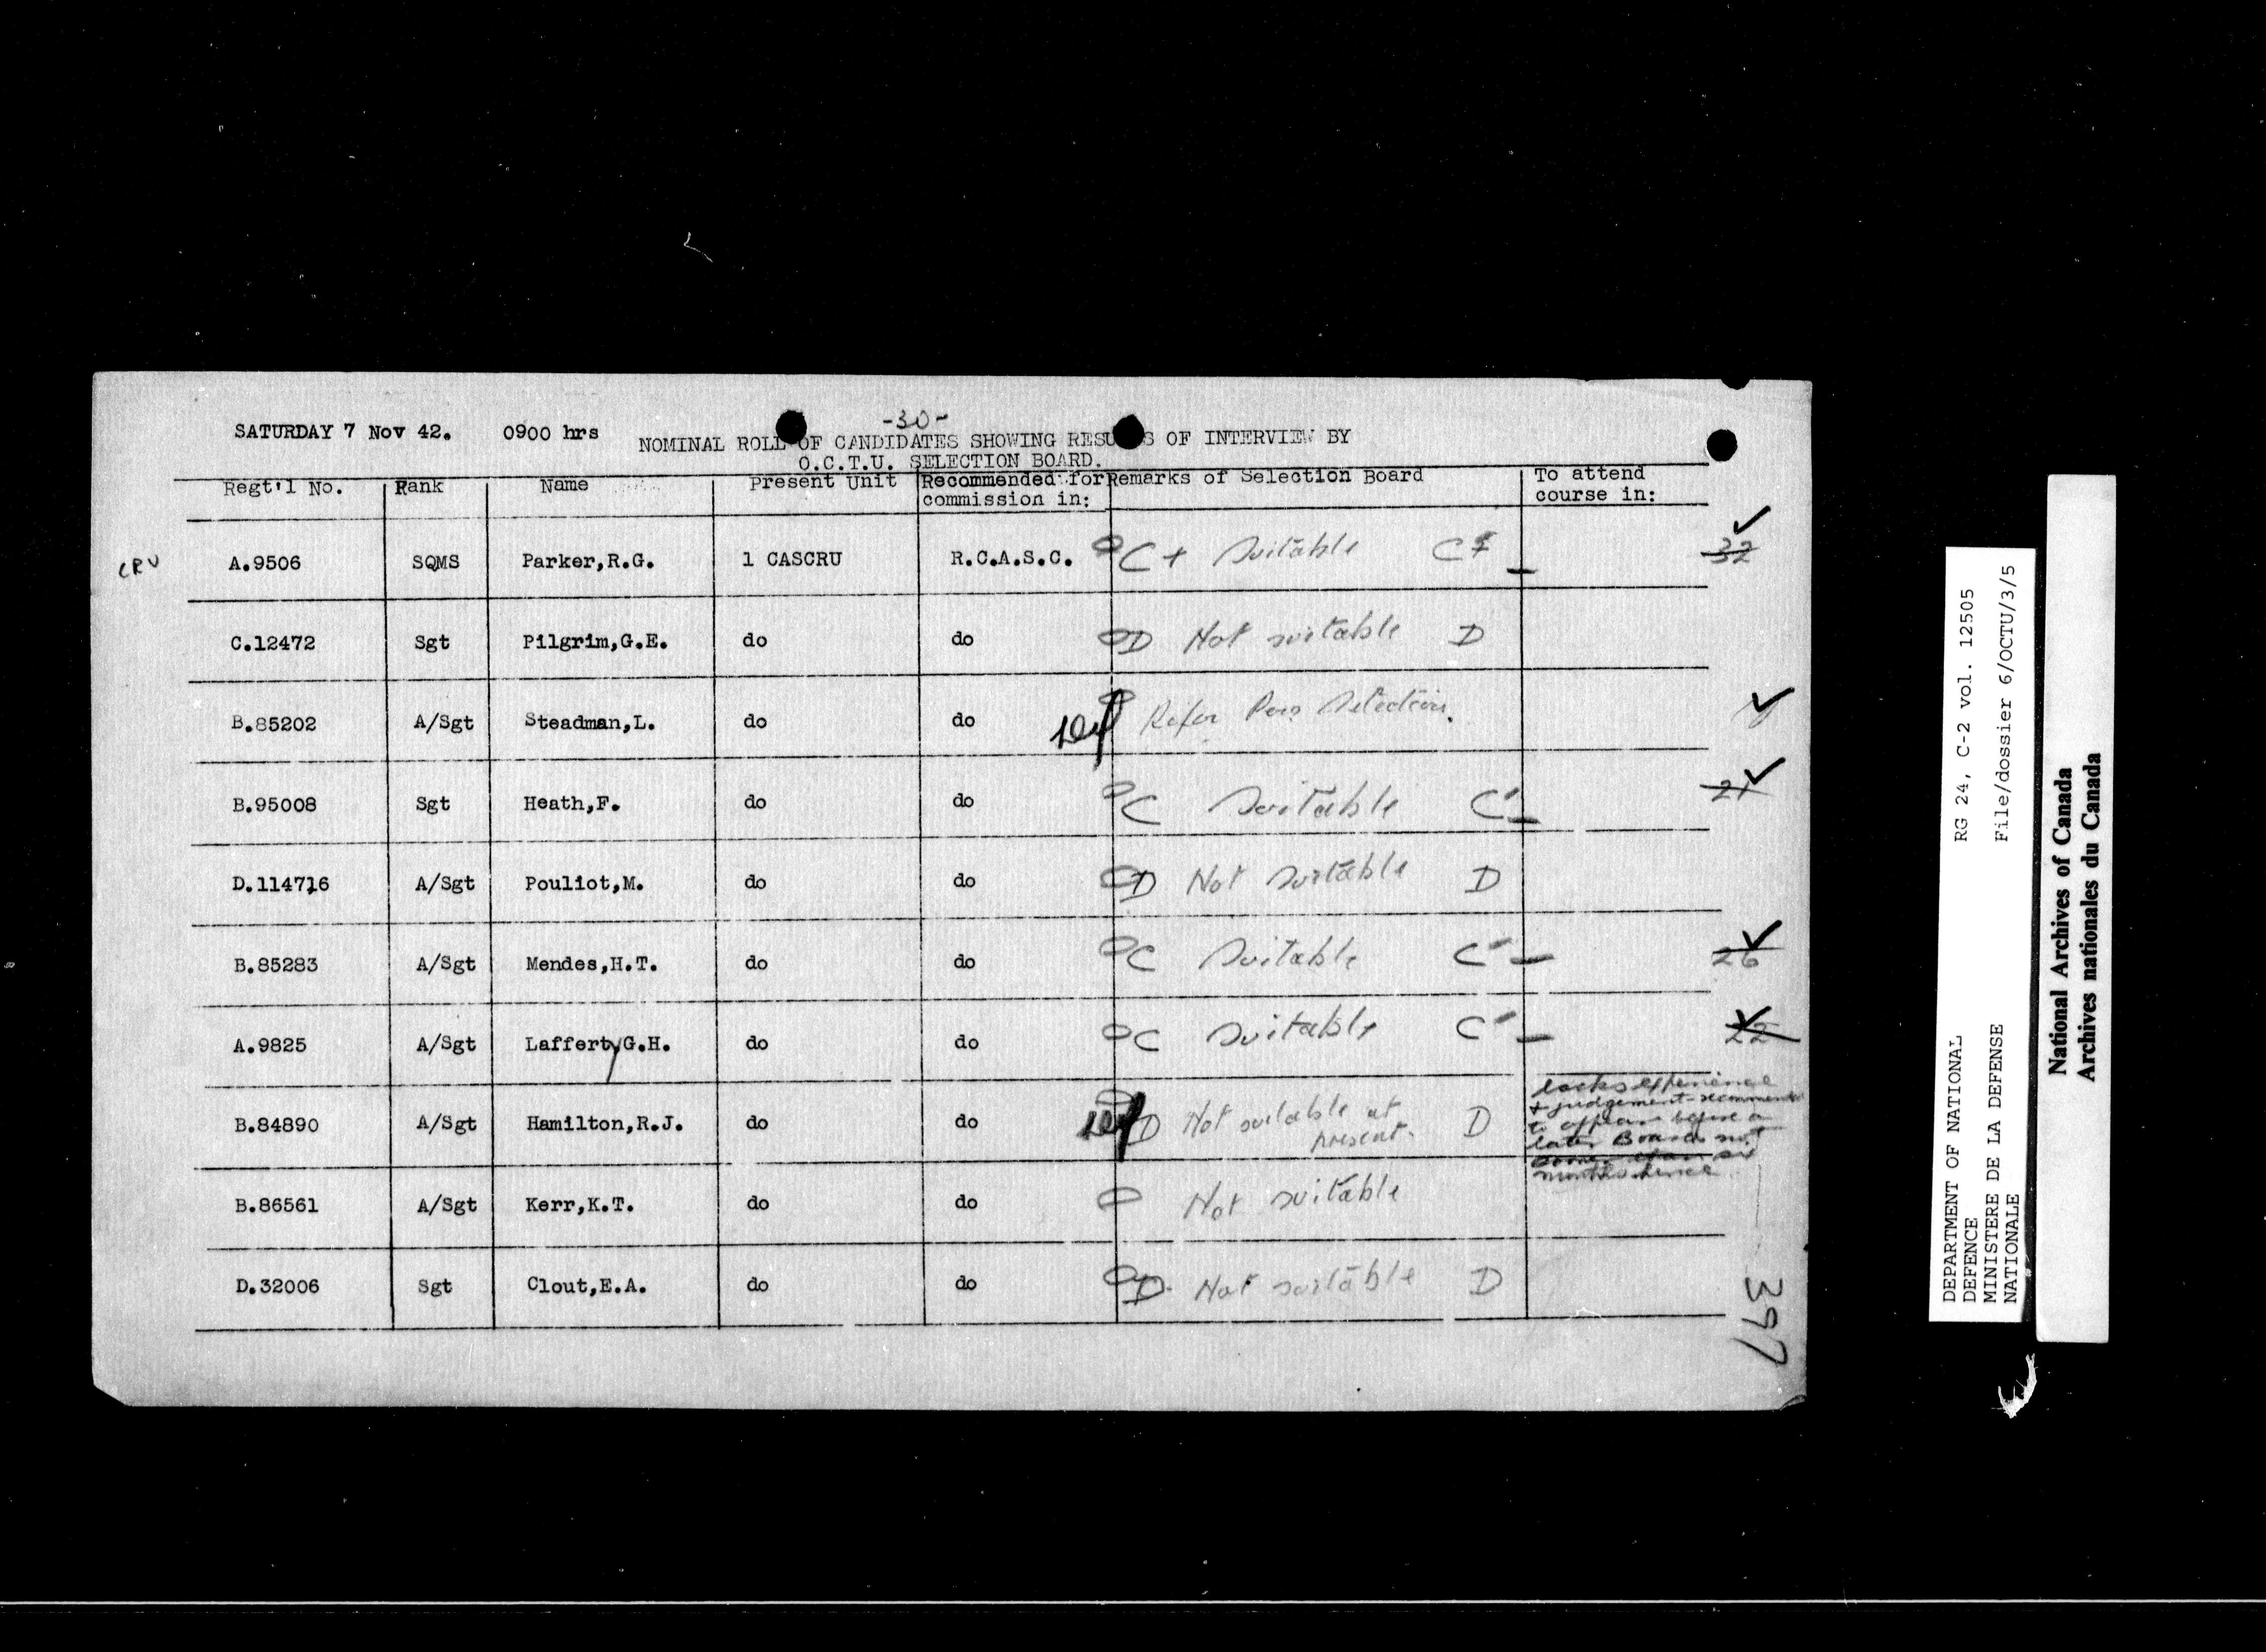 -30-
SATURDAY 7 Nov 42. 0900 hrs
NOMINAL ROLL OF CANDIDATES SHOWING RESU S OF INTERVIEW BY
O.C.T.U. SELECTION BOARD.
Regt'l No. Rank Name Present Unit Recommended for commission in: Remarks of Selection Board To attend course in:
CRU A.9506 SQMS Parker,R.G. 1 CASCRU R.C.A.S.C. C+ Suitable C+ 32
C.12472 Sgt Pilgrim,G.E. do do D Not suitable D
B.85202 A/Sgt Steadman,L. do do Refer Pers Selection.
B.95008 Sgt Heath,F. do do C Suitable C 21
D.114716 A/Sgt Pouliot,M. do do D Not suitable D
B.85283 A/Sgt Mendes,H.T. do do C Suitable C 26
A.9825 A/Sgt Lafferty G.H. do do C Suitable C 22
B.84890 A/Sgt Hamilton,R.J. do do D Not suitable at present. D
lacks experience
+ judgement - recommended
to appear before a
later Board not
sooner than six
months hence
B.86561 A/Sgt Kerr,K.T. do do Not suitable
D.32006 Sgt Clout,E.A. do do D. Not suitable D
397
DEPARTMENT OF NATIONAL
DEFENCE
MINISTERE DE LA DEFENSE
NATIONALE
RG 24, C-2 vol. 12505
File/dossier 6/OCTU/3/5
National Archives of Canada
Archives nationales du Canada